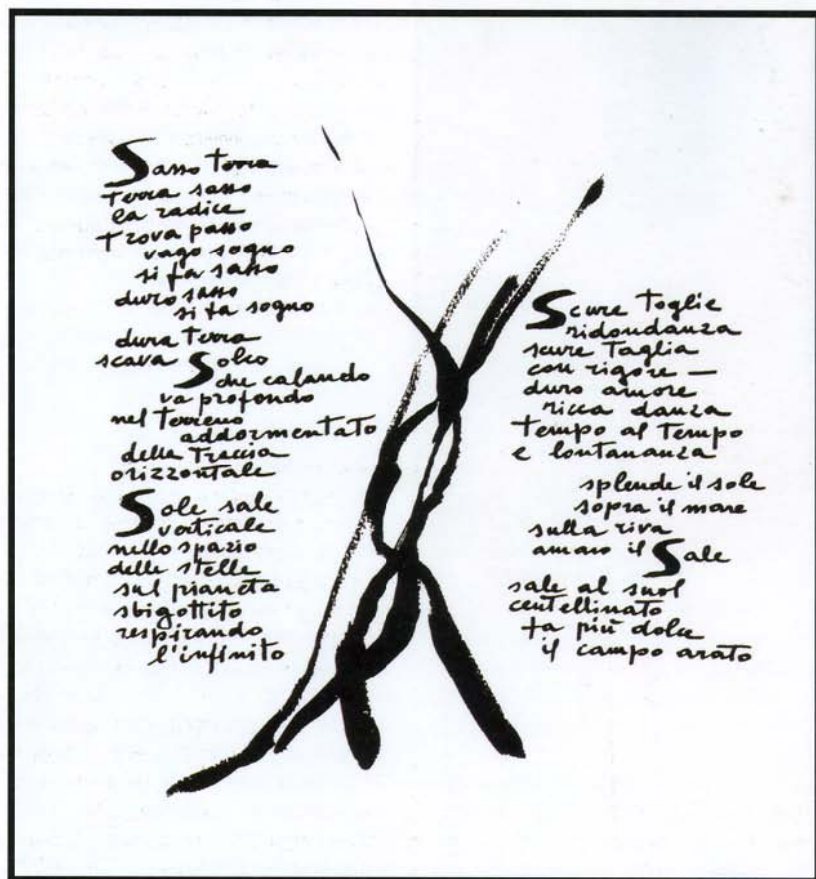 Sasso terra
terra sasso
la radice
trova passo
vago sogno
si fa sasso
duro sasso
si fa sogno
dura terra
scava Solco
che calando
va profondo
nel terreno
addormentato
della traccia
orizzontale
Sole sale
verticale
nello spazio
delle stelle
sul pianeta
sbigottito
respirando
l'infinito
Scure toglie
ridondanza
scure taglia
con rigore —
duro amore
ricca danza
tempo al tempo
e lontananza
splende il sole
sopra il mare
sulla riva
amaro il Sale
sale al suol
centellinato
fa più dolce
il campo arato